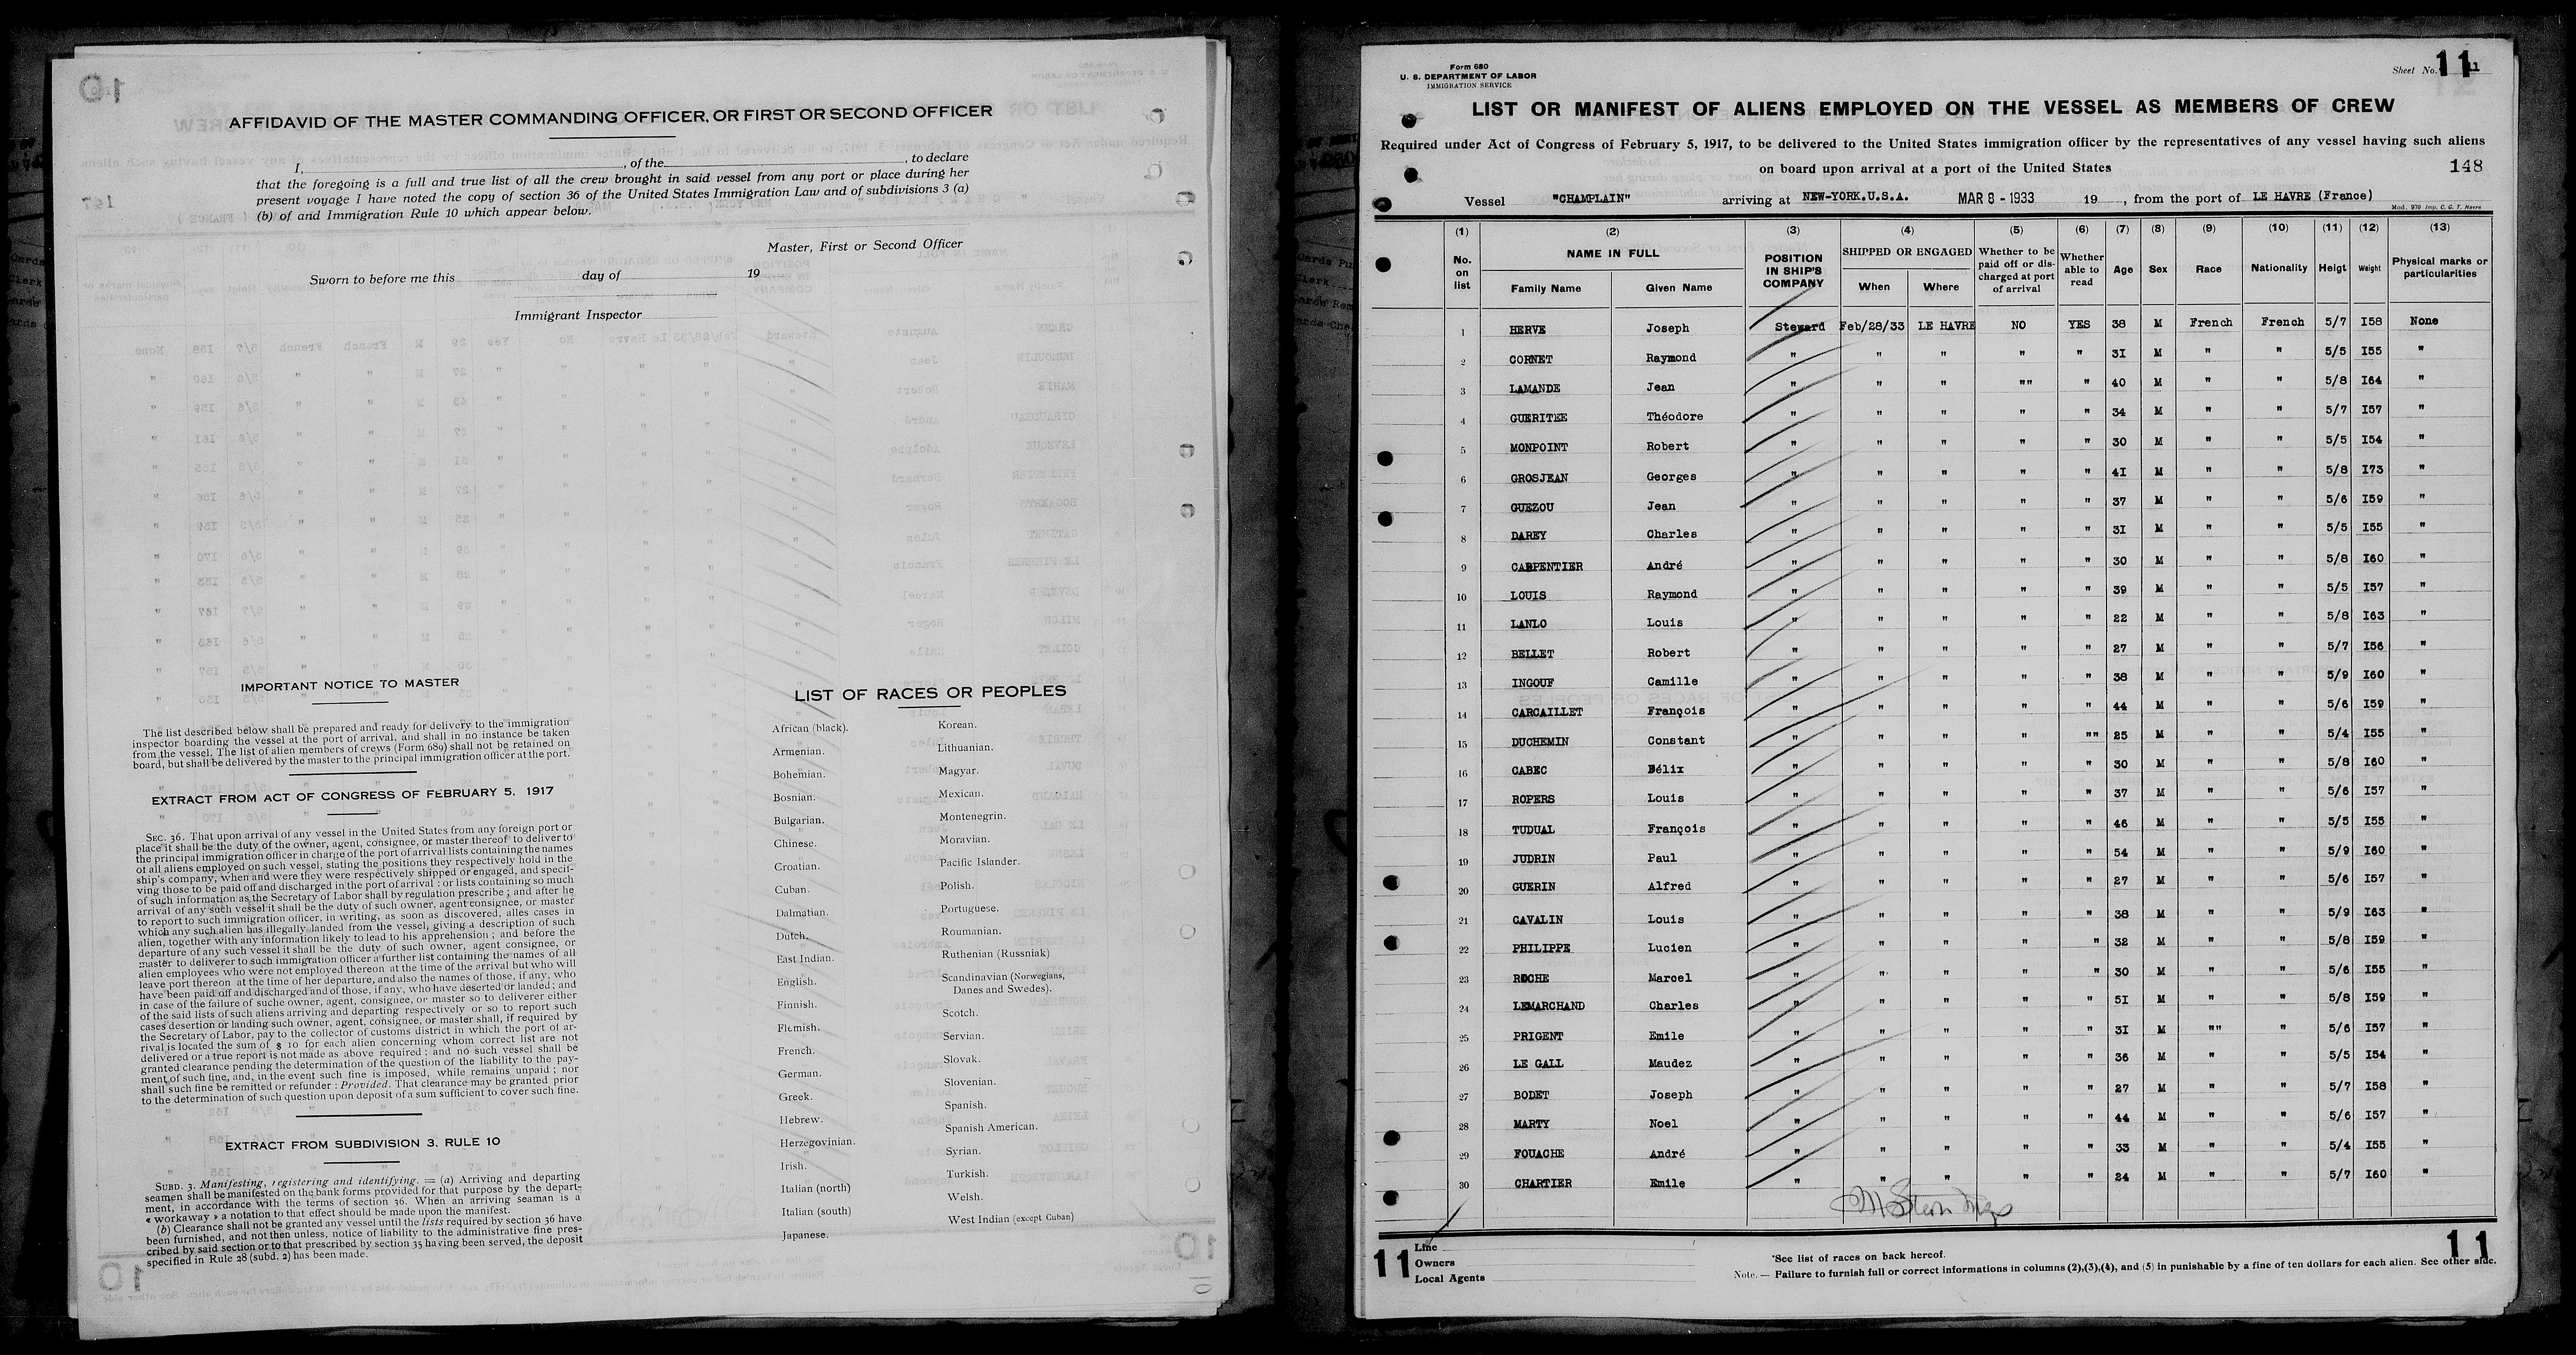 AFFIDAVID OF THE MASTER COMMANDING OFFICER, OR FIRST OR SECOND OFFICER
I, , of the , to declare
that the foregoing is a full and true list of all the crew brought in said vessel from any port or place during her
present voyage I have noted the copy of section 36 of the United States Immigration Law and of subdivisions 3 (a)
(b) of and Immigration Rule 10 which appear below.
Master, First or Second Officer
Sworn to before me this day of 19
Immigrant Inspector
IMPORTANT NOTICE TO MASTER
The list described below shall be prepared and ready for delivery to the immigration
inspector boarding the vessel at the port of arrival, and shall in no instance be taken
from the vessel. The list of alien members of crews (Form 689) shall not be retained on
board, but shall be delivered by the master to the principal immigration officer at the port.
EXTRACT FROM ACT OF CONGRESS OF FEBRUARY 5, 1917
SEC. 36. That upon arrival of any vessel in the United States from any foreign port or
place it shall be the duty of the owner, agent, consignee, or master thereof to deliver to
the principal immigration officer in charge of the port of arrival lists containing the names
of all aliens employed on such vessel, stating the positions they respectively hold in the
ship's company, when and were they were respectively shipped or engaged, and specif-
ving those to be paid off and discharged in the port of arrival : or lists containing so much
of such information as the Secretary of Labor shall by regulation prescribe ; and after he
arrival of any such vessel it shall be the duty of such owner, agent consignee, or master
to report to such immigration officer, in writing, as soon as discovered, alles cases in
which any such alien has illegally landed from the vessel, giving a description of such
alien, together with any information likely to lead to his apprehension ; and before the
departure of any such vessel it shall be the duty of such owner, agent consignee, or
master to deliverer to such immigration officer a further list containing the names of all
alien employees who were not employed thereon at the time of the arrival but who will
leave port thereon at the time of her departure, and also the names of those, if any, who
have been paid off and discharged and of those, if any, who have deserted or landed ; and
in case of the failure of suche owner, agent, consignee, or master so to deliverer either
of the said lists of such aliens arriving and departing respectively or so to report such
cases desertion or landing such owner, agent, consignee, or master shall, if required by
the Secretary of Labor, pay to the collector of customs district in which the port of ar-
rival is located the sum of $ 10 for each alien concerning whom correct list are not
delivered or a true report is not made as above required ; and no such vessel shall be
granted clearance pending the determination of the question of the liability to the pay-
ment of such fine, and, in the event such fine is imposed, while remains unpaid ; nor
shall such fine be remitted or refunder : Provided. That clearance may be granted prior
to the determination of such question upon deposit of a sum sufficient to cover such fine.
EXTRACT FROM SUBDIVISION 3, RULE 10
SUBD. 3. Manifesting, registering and identifying. = (a) Arriving and departing
seamen shall be manifested on the bank forms provided for that purpose by the depart-
ment, in accordance with the terms of section 36. When an arriving seaman is a
« workaway » a notation to that effect should be made upon the manifest.
(b) Clearance shall not be granted any vessel until the lists required by section 36 have
been furnished, and not then unless, notice of liability to the administrative fine pres-
cribed by said section or to that prescribed by section 35 having been served, the deposit
specified in Rule 28 (subd. 2) has been made.
LIST OF RACES OR PEOPLES
African (black).
Armenian.
Bohemian.
Bosnian.
Bulgarian.
Chinese.
Croatian.
Cuban.
Dalmatian.
Dutch.
East Indian.
English.
Finnish.
Flemish.
French.
German.
Greek.
Hebrew.
Herzegovinian.
Irish.
Italian (north)
Italian (south)
Japanese.
Korean.
Lithuanian.
Magyar.
Mexican.
Montenegrin.
Moravian.
Pacific Islander.
Polish.
Portuguese.
Roumanian.
Ruthenian (Russniak)
Scandinavian (Norwegians,
Danes and Swedes).
Scotch.
Servian.
Slovak.
Slovenian.
Spanish.
Spanish American.
Syrian.
Turkish.
Welsh.
West Indian (except Cuban)
Form 680
U. S. DEPARTMENT OF LABOR
IMMIGRATION SERVICE
Sheet No. 11 11
LIST OR MANIFEST OF ALIENS EMPLOYED ON THE VESSEL AS MEMBERS OF CREW
Required under Act of Congress of February 5, 1917, to be delivered to the United States immigration officer by the representatives of any vessel having such aliens
on board upon arrival at a port of the United States
148
Vessel "CHAMPLAIN" arriving at NEW-YORK.U.S.A. MAR 8 - 1933 19 , from the port of LE HAVRE (France)
Mod. 970 Imp. C. G. T. Havre
(1) (2) (3) (4) (5) (6) (7) (8) (9) (10) (11) (12) (13)
No. on list NAME IN FULL Family Name Given Name POSITION IN SHIP'S COMPANY SHIPPED OR ENGAGED When Where Whether to be paid off or dis-charged at port of arrival Whether able to read Age Sex Race Nationality Heigt Weight Physical marks or particularities
1 HERVE Joseph Steward Feb/28/33 LE HAVRE NO YES 38 M French French 5/7 I58 None
2 CORNET Raymond " " " " " 3I M " " 5/5 I55 "
3 LAMANDE Jean " " " "" " 40 M " " 5/8 I64 "
4 GUERITEE Théodore " " " " " 34 M " " 5/7 I57 "
5 MONPOINT Robert " " " " " 30 M " " 5/5 I54 "
6 GROSJEAN Georges " " " " " 4I M " " 5/8 I73 "
7 GUEZOU Jean " " " " " 37 M " " 5/6 I59 "
8 DAREY Charles " " " " " 3I M " " 5/5 I55 "
9 CARPENTIER André " " " " " 30 M " " 5/8 I60 "
10 LOUIS Raymond " " " " " 39 M " " 5/5 I57 "
11 LANLO Louis " " " " " 22 M " " 5/8 I63 "
12 BELLET Robert " " " " " 27 M " " 5/7 I56 "
13 INGOUF Camille " " " " " 38 M " " 5/9 I60 "
14 CARCAILLET François " " " " " 44 M " " 5/6 I59 "
15 DUCHEMIN Constant " " " " "" 25 M " " 5/4 I55 "
16 CABEC Félix " " " " " 30 M " " 5/8 I60 "
17 ROPERS Louis " " " " " 37 M " " 5/6 I57 "
18 TUDUAL François " " " " " 46 M " " 5/5 I55 "
19 JUDRIN Paul " " " " " 54 M " " 5/9 I60 "
20 GUERIN Alfred " " " " " 27 M " " 5/6 I57 "
21 CAVALIN Louis " " " " " 38 M " " 5/9 I63 "
22 PHILIPPE Lucien " " " " " 32 M " " 5/8 I59 "
23 ROCHE Marcel " " " " " 30 M " " 5/6 I55 "
24 LEMARCHAND Charles " " " " " 5I M " " 5/8 I59 "
25 PRIGENT Emile " " " " " 3I M "" " 5/6 I57 "
26 LE GALL Maudez " " " " " 36 M " " 5/5 I54 "
27 BODET Joseph " " " " " 27 M " " 5/7 I58 "
28 MARTY Noel " " " " " 44 M " " 5/6 I57 "
29 FOUACHE André " " " " " 33 M " " 5/4 I55 "
30 CHARTIER Emile " " " " " 24 M " " 5/7 I60 "
11
Line
Owners
Local Agents
*See list of races on back hereof.
11
Note. — Failure to furnish full or correct informations in columns (2),(3),(4), and (5) in punishable by a fine of ten dollars for each alien. See other side.